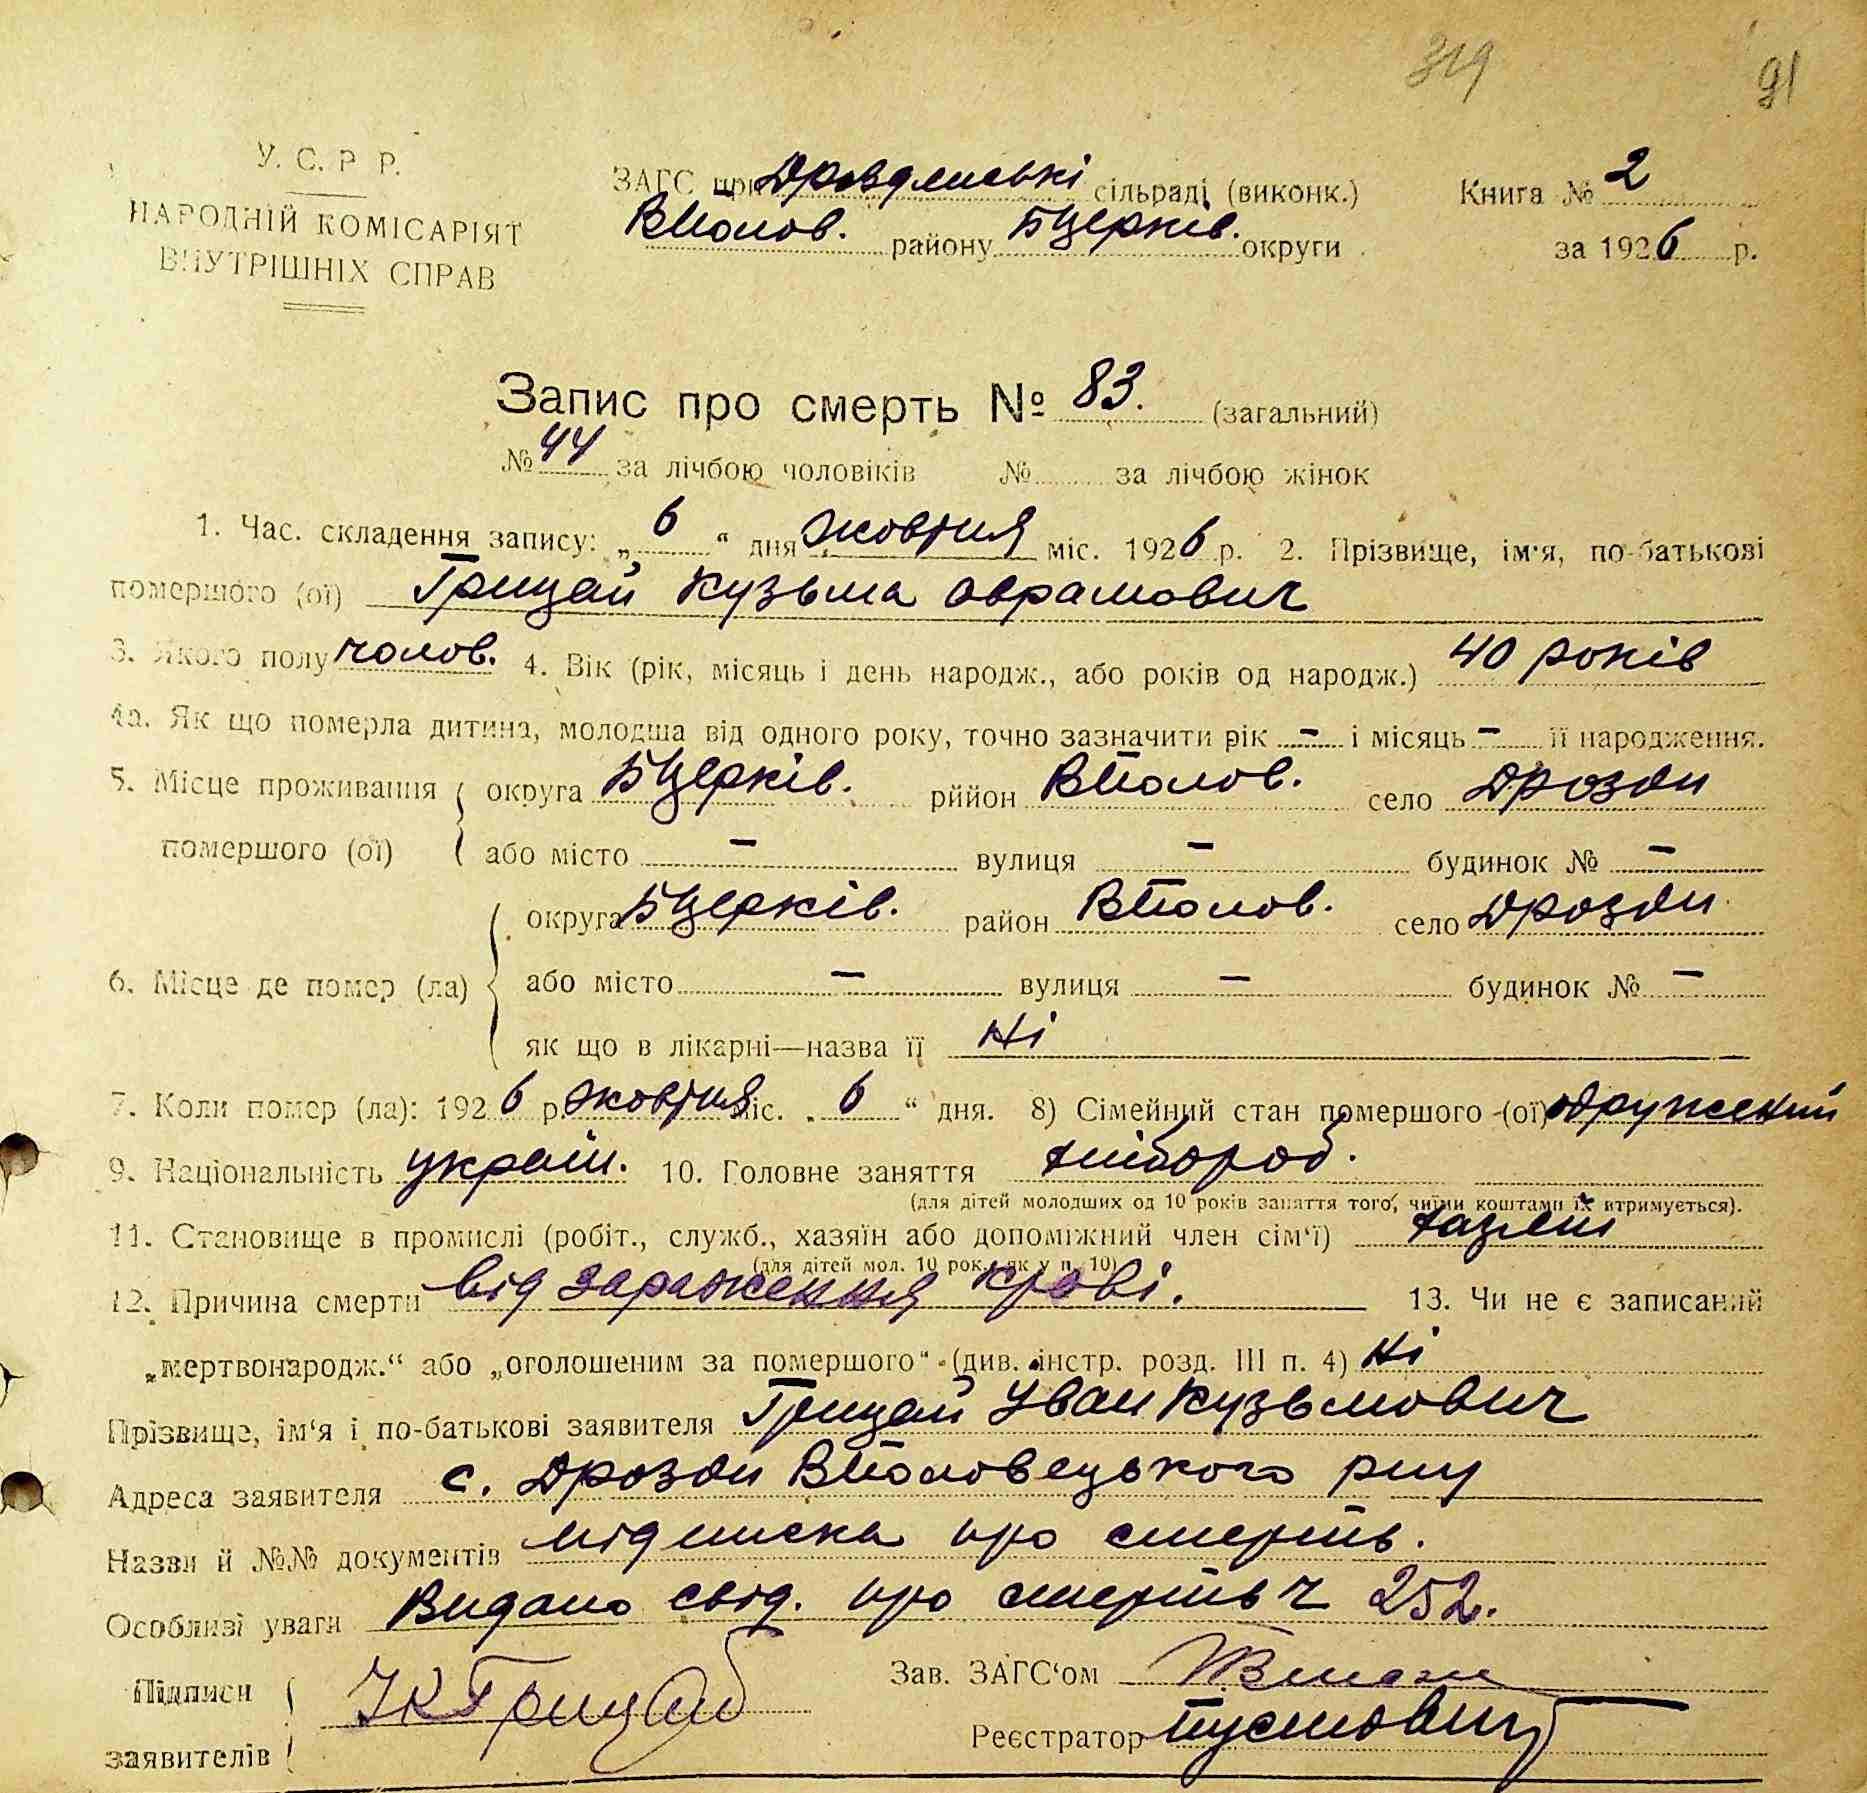 319 91
У. С. Р Р.
НАРОДНІЙ КОМІСАРІЯТ
ВНУТРІШНІХ СПРАВ
ЗАГС при Дроздянські сільраді (виконк.) Книга № 2
ВПолов. району БЦерків. округи за 1926 р.
Запис про смерть № 83. (загальний)
№ 44 за лічбою чоловіків № за лічбою жінок
1. Час. складення запису: „ 6 “ дня жовтня міс. 1926 р. 2. Прізвище, ім'я, по-батькові
помершого (ої) Грицай Кузьма Оврамович
3. Якого полу чолов. 4. Вік (рік, місяць і день народж., або років од народж.) 40 років
4а. Як що померла дитина, молодша від одного року, точно зазначити рік — і місяць — її народження.
5. Місце проживання округа БЦерків. рййон ВПолов. село Дрозди
помершого (ої) або місто — вулиця — будинок № —
округа БЦерків. район ВПолов. село Дрозди
6. Місце де помер (ла) або місто — вулиця — будинок № —
як що в лікарні—назва її Ні
7. Коли помер (ла): 1926 р. жовтня міс. „ 6 “ дня. 8) Сімейний стан помершого (ої) одружений
9. Національність україн. 10. Головне заняття хлібороб.
(для дітей молодших од 10 років заняття того, чиїми коштами їх втримується).
11. Становище в промислі (робіт., служб., хазяїн або допоміжний член сім'ї) хазяїн
(для дітей мол. 10 рок., як у п. 10)
12. Причина смерти від зараження крові. 13. Чи не є записаний
„мертвонародж.“ або „оголошеним за помершого“ (див. інстр. розд. III п. 4) Ні
Прізвище, ім'я і по-батькові заявителя Грицай Іван Кузьмович
Адреса заявителя с. Дрозди ВПоловецького р-ну
Назви й №№ документів підписка про смерть.
Особливі уваги Видано свід. про смерть Ч 252.
Підписи ІКГрицай Зав. ЗАГС'ом
заявителів Реєстратор Пустовіт